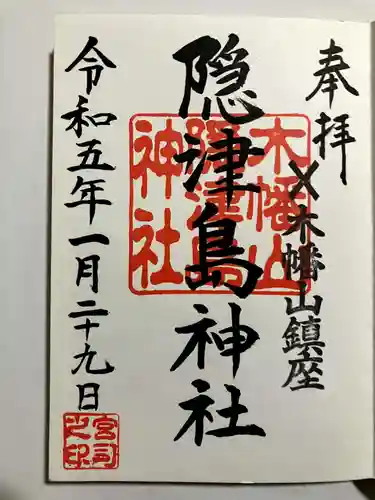 奉拝
〆木幡山鎮座
隠津島神社
令和五年一月二十九日
木幡山
隠津島
神社
宮司
之印